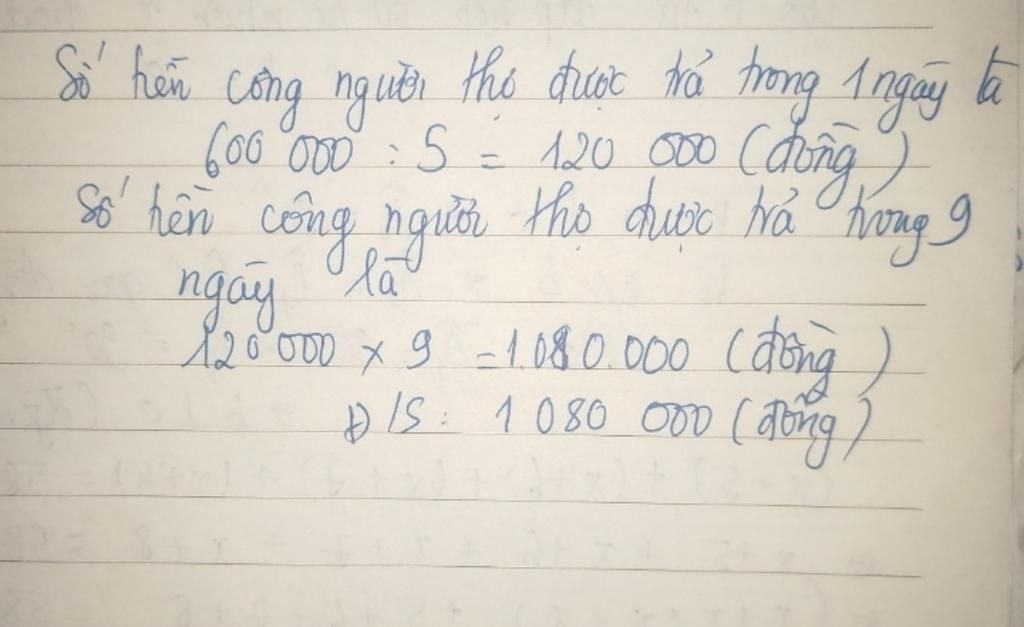 Số tiền công người thợ được trả trong 1 ngày là
600 000 : 5 = 120 000 (đồng)
Số tiền công người thợ được trả trong 9
ngày là
120 000 x 9 = 1.080.000 (đồng)
Đ/S: 1 080 000 (đồng)